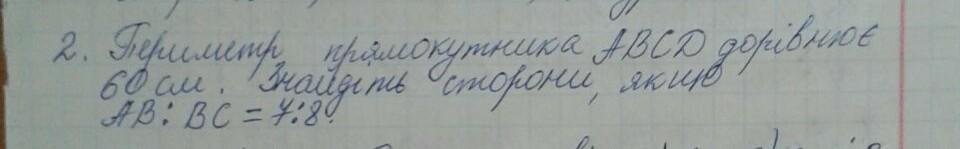 2. Периметр прямокутника ABCD дорівнює
60 см. Знайдіть сторони, якию
AB : BC = 7:8.